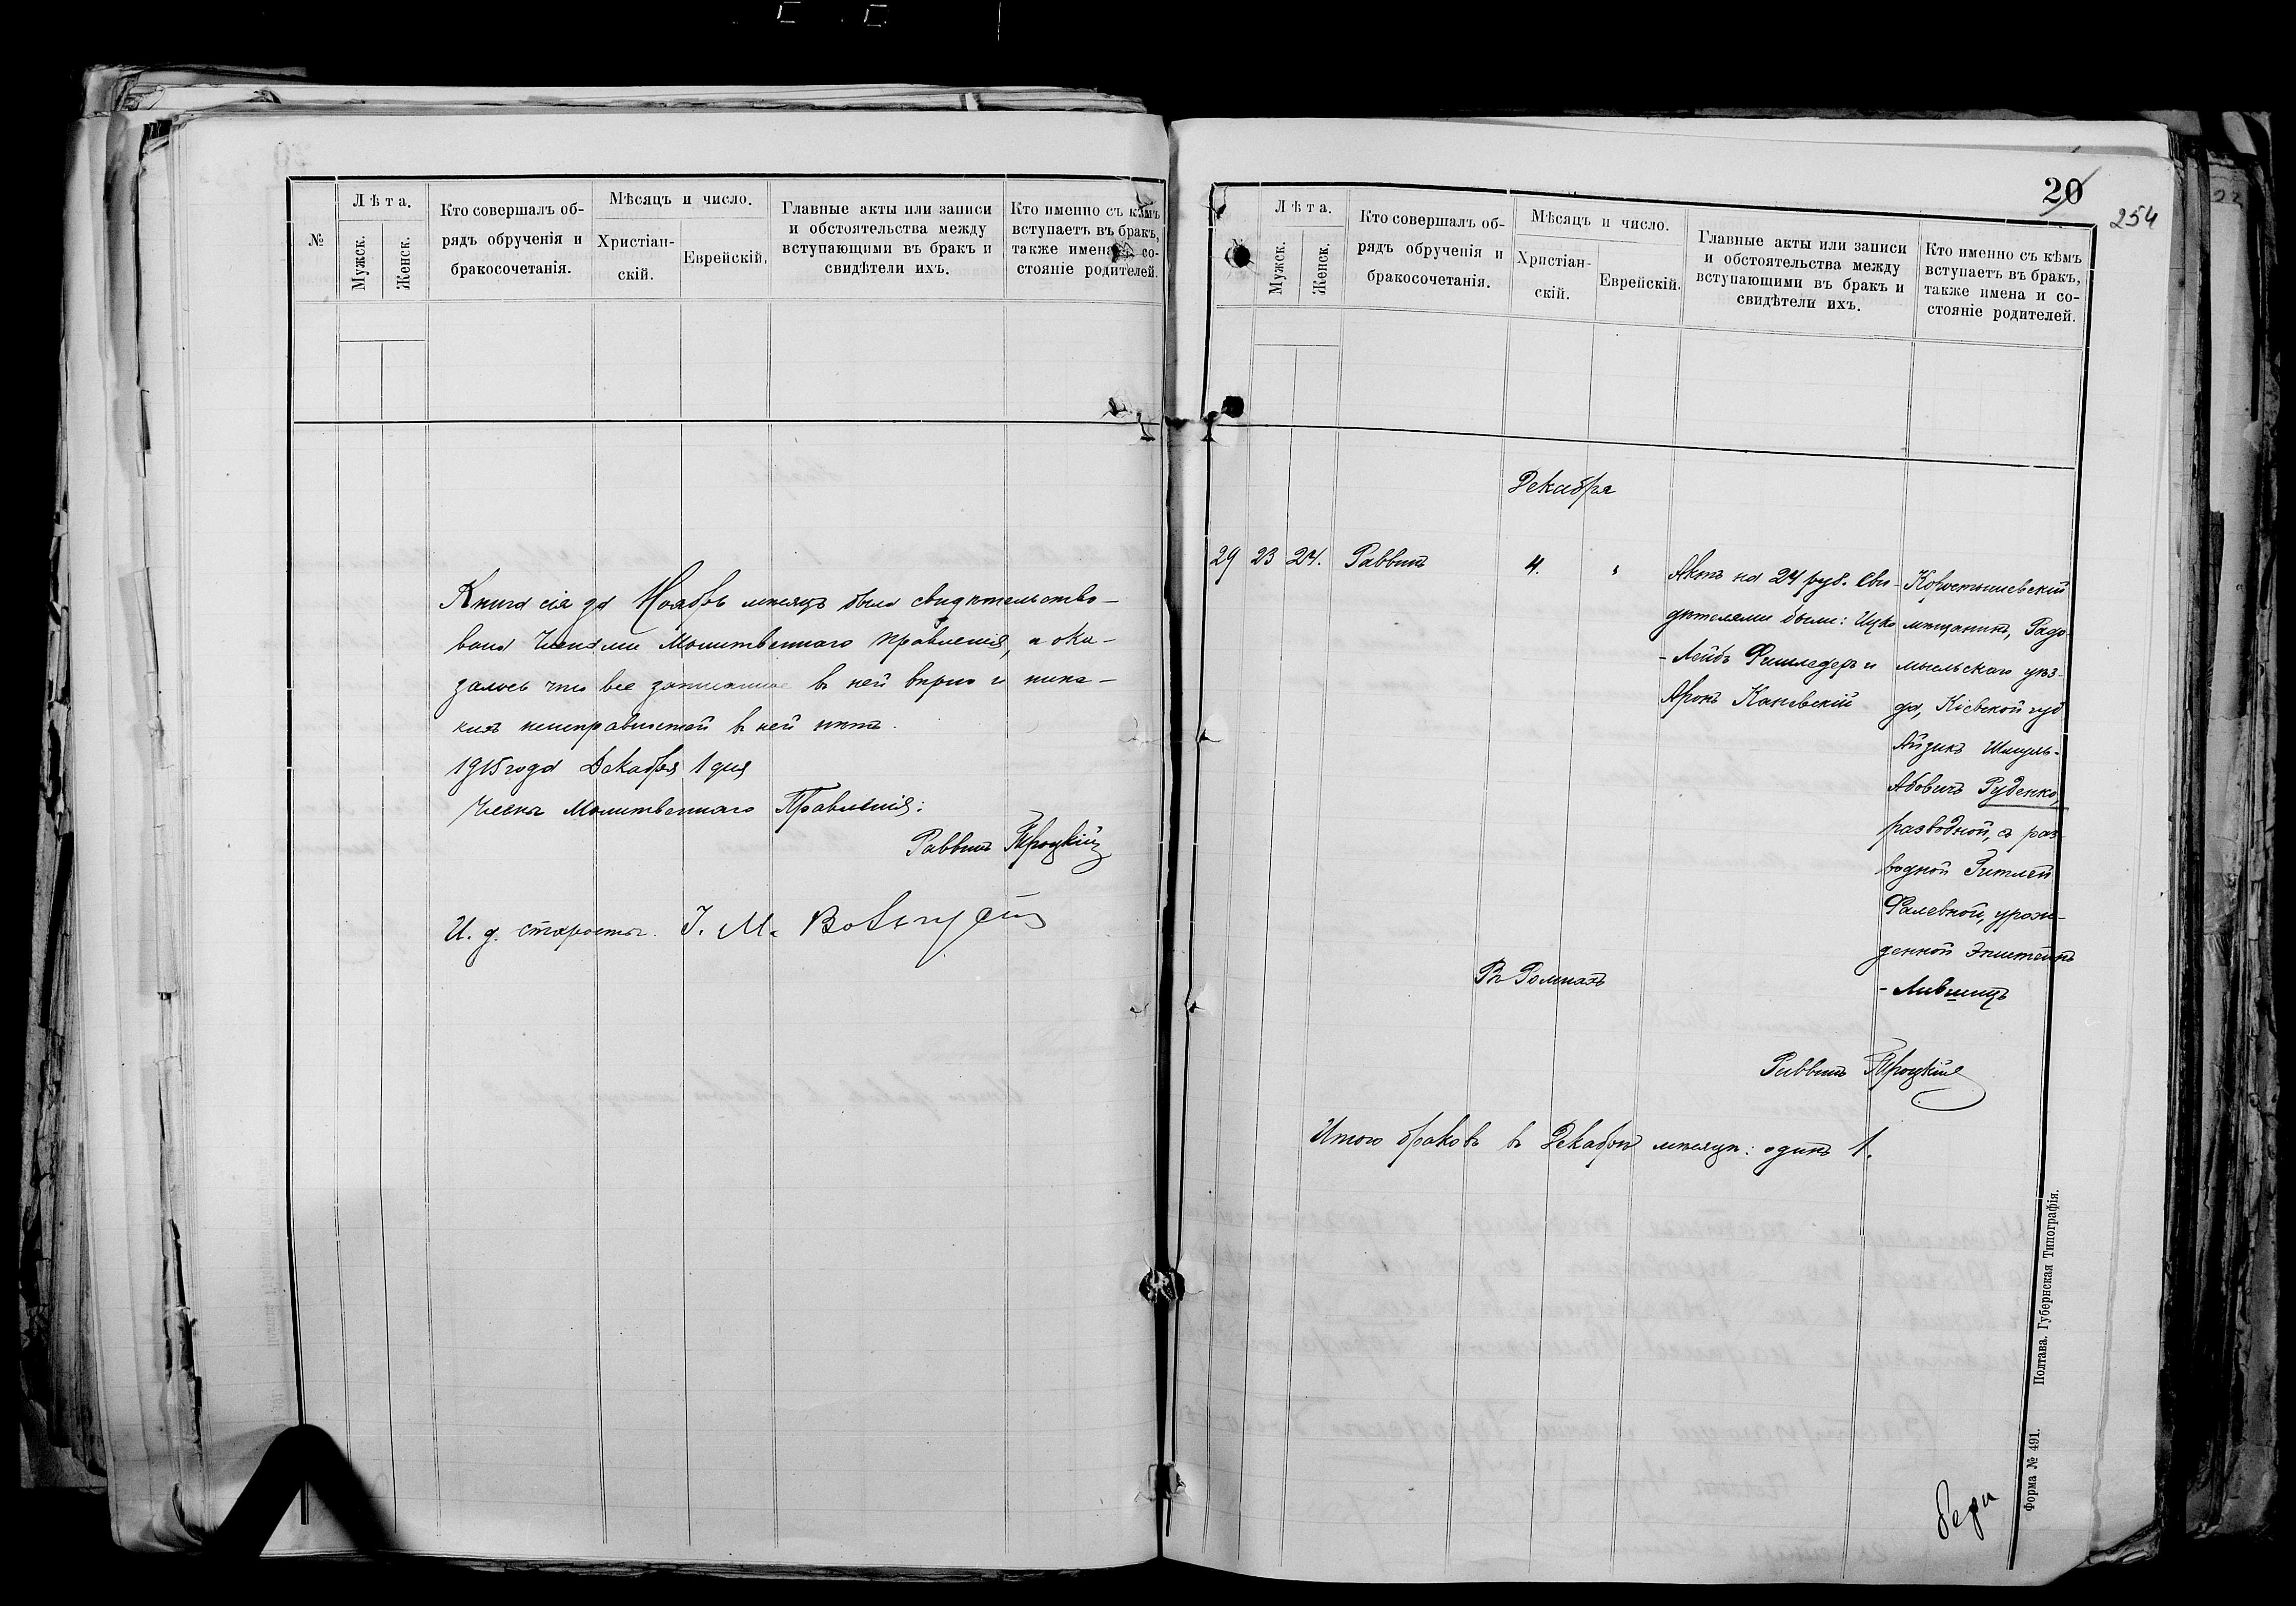 №
Лѣта.
Мужск.
Женск.
Кто совершалъ об-
рядъ обрученія и
бракосочетанія.
Мѣсяцъ и число.
Христіан-
скій.
Еврейскій.
Главные акты или записи
и обстоятельства между
вступающими въ бракъ и
свидѣтели ихъ.
Кто именно съ кѣмъ
вступаетъ въ бракъ,
также имена и со-
стояніе родителей.
Книга сія за Ноябрь мѣсяцъ была свидѣтельство-
вана Членами Молитвеннаго Правленія, и ока-
залось что все записанное въ ней вѣрно и ника-
кихъ неисправностей въ ней нѣтъ.
1915 года Декабря 1 дня
Члены Молитвеннаго Правленія:
Раввинъ Троцкій
И. д. старосты. І. М.
20
254
Лѣта.
Мужск.
Женск.
Кто совершалъ об-
рядъ обрученія и
бракосочетанія.
Мѣсяцъ и число.
Христіан-
скій.
Еврейскій.
Главные акты или записи
и обстоятельства между
вступающими въ бракъ и
свидѣтели ихъ.
Кто именно съ кѣмъ
вступаетъ въ бракъ,
также имена и со-
стояніе родителей.
Декабря
29 23 24. Раввинъ 4. "
Актъ на 24 руб. Сви-
дѣтелями были: Ицко
-Лейбъ Фишледеръ и
Аронъ Каневскій
Коростышевскій
мѣщанинъ, Радо-
мысльскаго уѣз-
да, Кіевской губ
Айзикъ Шмуль-
Абовичъ Руденко,
разводной, съ раз-
водной Гитлей
Фалевной, урож-
денной Эпштейнъ
-Лившицъ
Въ Ромнахъ
Раввинъ Троцкій
Итого браковъ въ Декабрѣ мѣсяцѣ: одинъ 1.
Форма № 491. Полтава. Губернская Типографія.